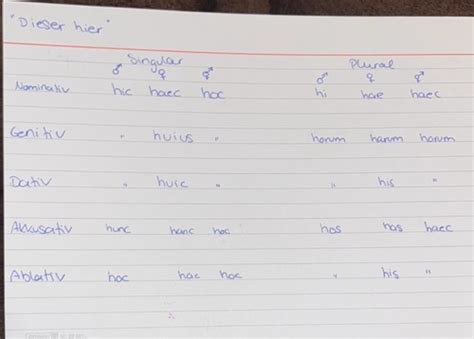 "Dieser hier"
Singular Plural
♂ ♀ ⚥ ♂ ♀ ⚥
Nominativ hic haec hoc hi hae haec
Genitiv " huius " horum harum horum
Dativ " huic " " his "
Akkusativ hunc hanc hoc hos has haec
Ablativ hoc hac hoc " his "